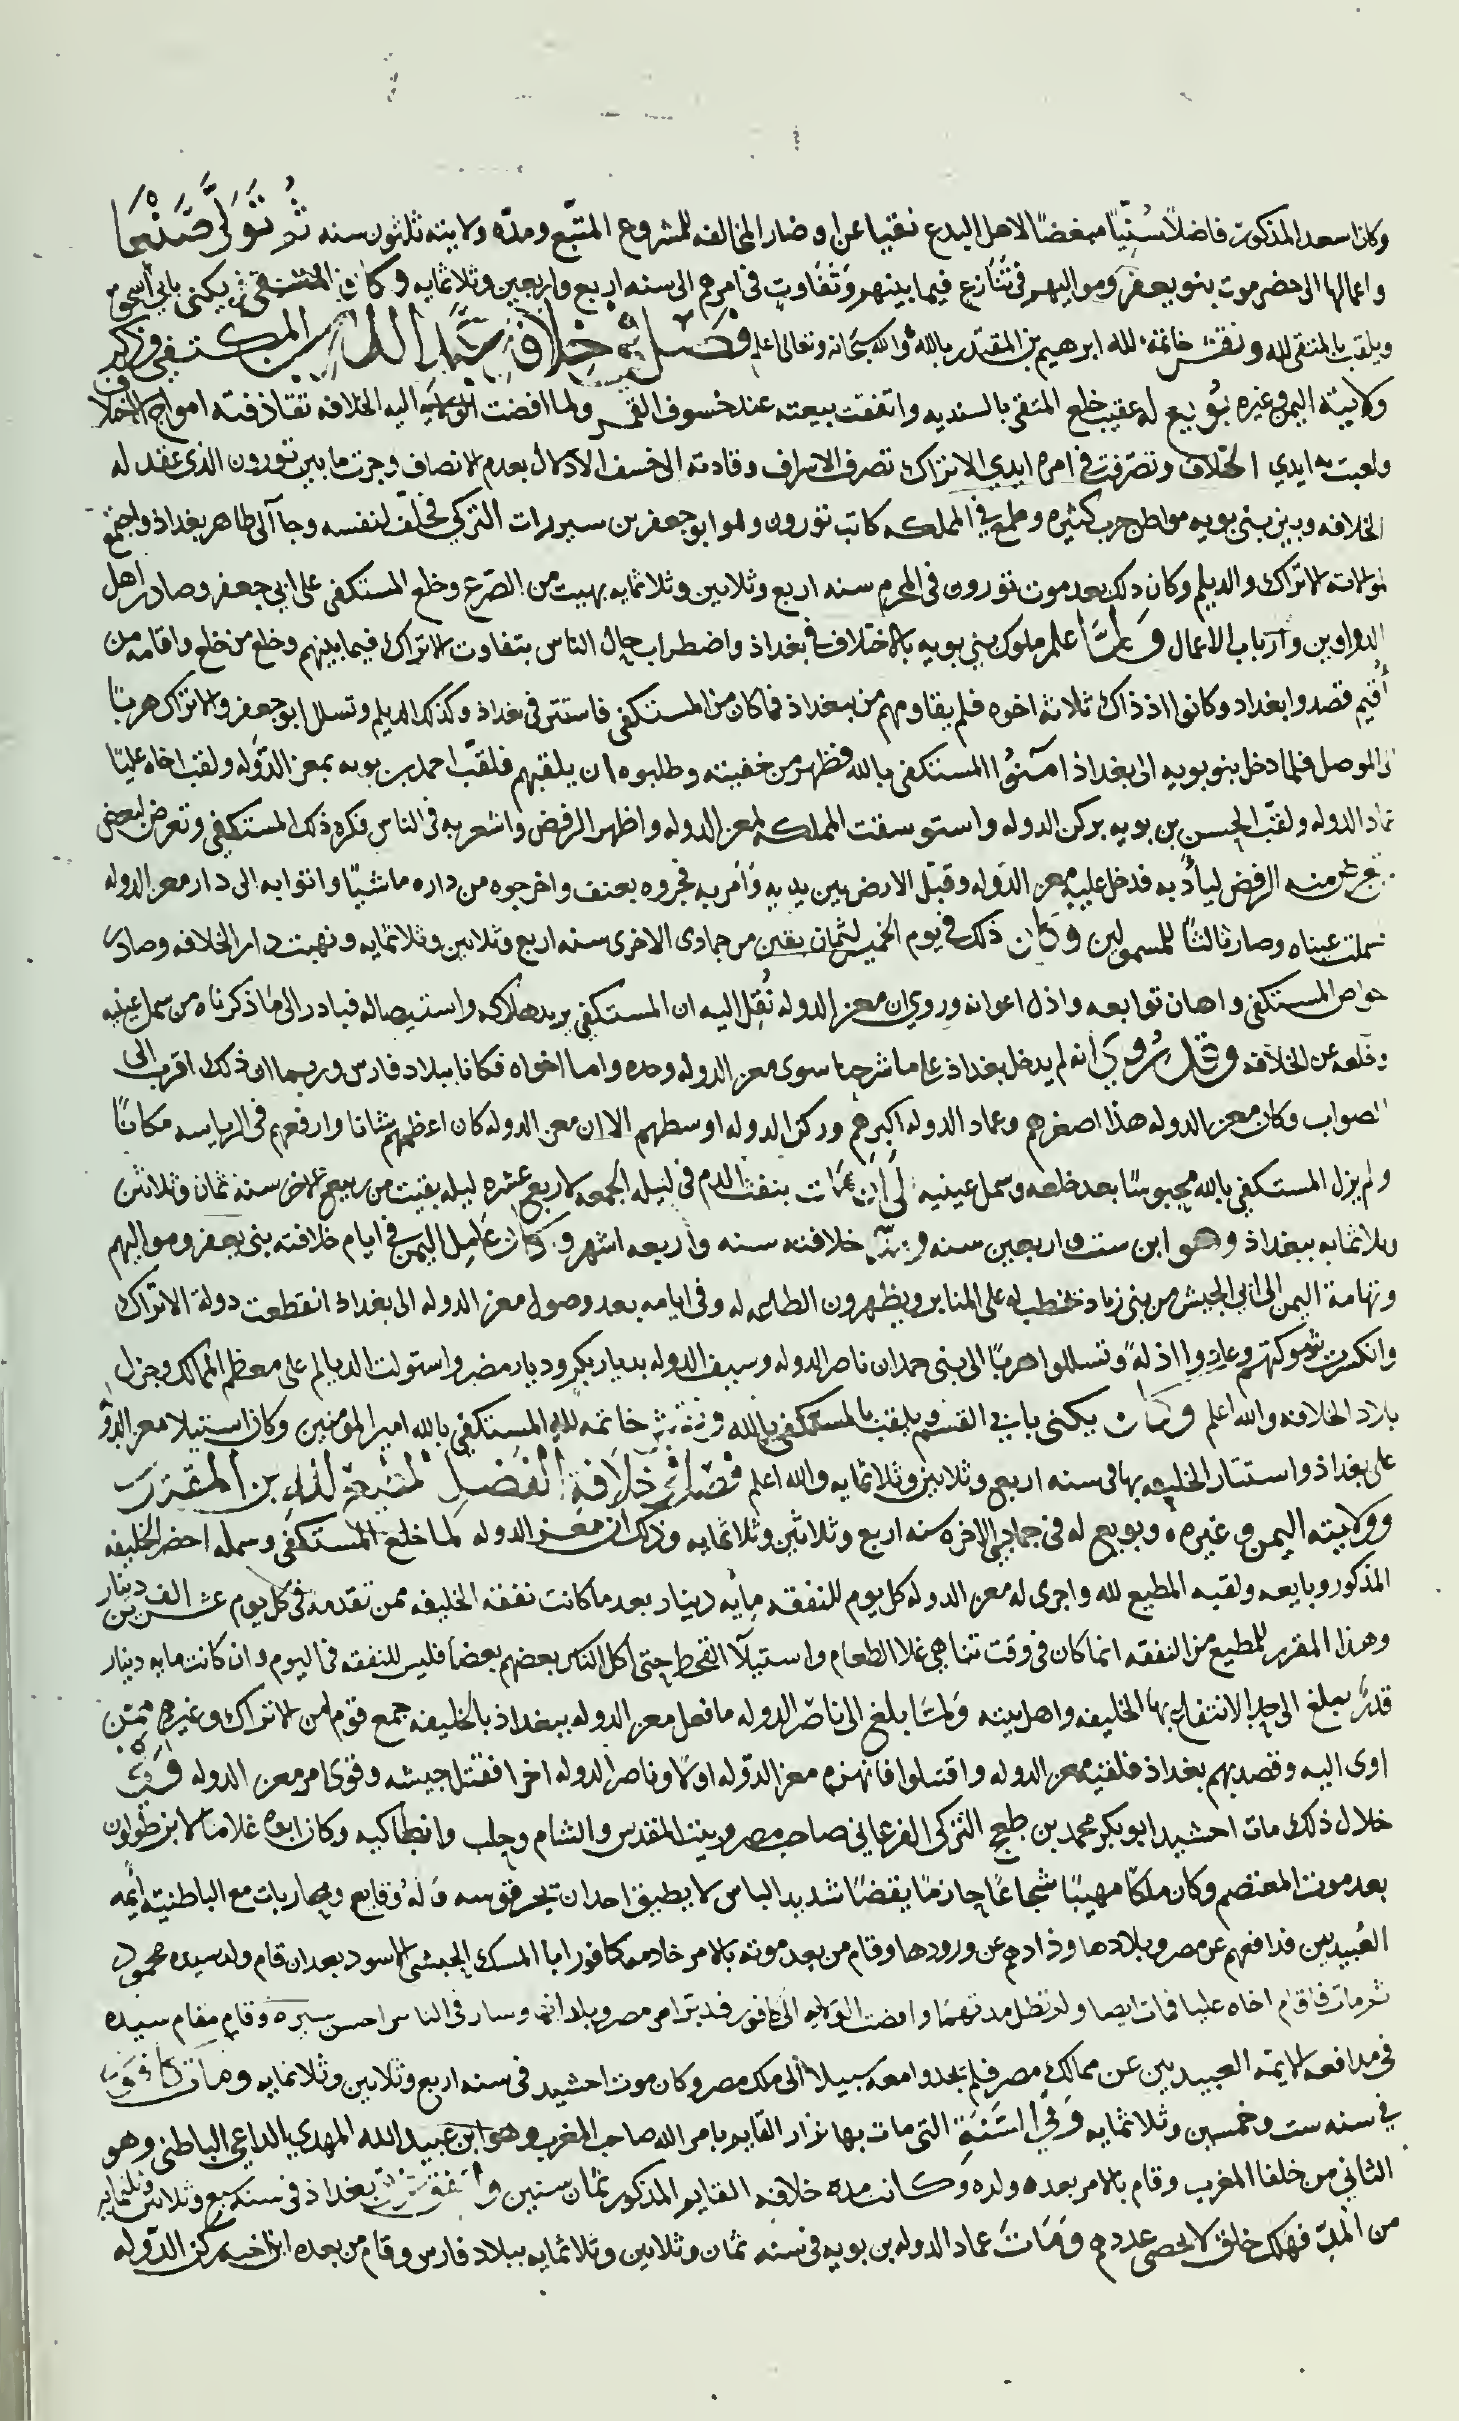 وكان اسعد المذكور فاضلاً سُنّيًا مبغضًا لاهل البدع نقيا عن اوضار المخالفه للمشروع المتبّع ومدّه ولايته ثلاثون سنه ثم تولى صنعا
واعمالها الى حضرموت بنو يعفر ومواليهم فى تنازع فيما بينهم وتفاوت فى امرهم الى سنه اربع واربعين وثلاثمايه وكان المتقى يكنى بابى اسحق
ويلقب بالمتقى لله ونقش خاتمه لله ابرهيم بن المقتدر بالله والله سبحانه وتعالى اعلم فصل فى خلافة عبد الله بن المكتفى وذكر
ولايته اليمن وغيره بويع له عقيب خلع المتقى بالسنديه واتفقت بيعته عند خسوف القمر ولما افضت اليه الخلافه تقاذفته امواج الاختلاف
ولعبت به ايدي الخلاف وتصرفت فى امره ايدي الاتراك تصرف الاسراف وقادته الى خسف الاذلال بعدم الانصاف وجرت ما بين تورون الذى عقد له
الخلافه وبين بنى بويه مواطن حرب كثيره وطمع في المملكه كاتب تورون وهو ابو جعفر بن سيرزات التركي فحلّف لنفسه وجاء الى ظاهر بغداذ واجتمع
لموالاته الاتراك والديلم وكان ذلك بعد موت تورون فى المحرم سنه اربع وثلاثين وثلاثمايه بهيت من الصّرع وخلع المستكفى على ابي جعفر وصادر اهل
الدواوين وارباب الاعمال ولما علم ملوك بني بويه بالاختلاف في بغداذ واضطراب حال الناس بتفاوت الاتراك فيما بينهم وخلع من خلع واقامه من
اُقيم قصدوا بغداد وكانوا اذ ذاك ثلاثه اخوه فلم يقاومهم من ببغداذ فما كان من المستكفى فاستتر فى بغداذ وكذلك الديلم وتسلل ابو جعفر والاتراك هربًا
الى الموصل فلما دخل بنو بويه الى بغداذ امّنوا المستكفى بالله فظهر من خفيته وطلبوه ان يلقبهم فلقّب احمد بن بويه بمعز الدوله ولقب اخاه عليّا
عماد الدوله ولقّب الحسن بن بويه بركن الدوله واستوسقت المملكه لمعز الدوله واظهر الرفض واشعر به فى الناس فكره ذلك المستكفى وتعرض لبعض
من الرفض ليأدّبه فدخل عليه معز الدوله وقبّل الارض بين يديه وأمر به فجروه بعنف واخرجوه من داره ماشيّا واتوا به الى دار معز الدوله
فسملت عيناه وصار ثالثًا للمسمولين وكان ذلك فى يوم الخميس لثمان بقين من جمادى الاخرى سنه اربع وثلاثين وثلاثمايه ونهبت دار الخلافه وصادر
خواص المستكفى واهان توابعه واذل اعوانه وروي ان معز الدوله نُقِل اليه ان المستكفى يريد هلاكه واستيصاله فبادر الى ما ذكرناه من سمل عينيه
وخلعه عن الخلافه وقد روي انه لم يدخل بغداذ على ما شرحنا سوى معز الدوله وحده واما اخواه فكانا ببلاد فارس وربما ان ذلك اقرب الى
الصواب وكان معز الدوله هذا اصغرهم وعماد الدوله اكبرهم وركن الدوله اوسطهم الا ان معز الدوله كان اعظمهم شانا وارفعهم فى الرياسه مكانًا
ولم يزل المستكفي بالله محبوسًا بعد خلعه وسمل عينيه الى ان مات بنفث الدم فى ليله الجمعه لاربع عشره ليله بقيت من ربيع الاخر سنه ثمان وثلاثين
وثلاثمايه ببغداذ وهو ابن ست واربعين سنه خلافته سنه واربعه اشهر وكان عامل اليمن في ايام خلافته بنى يعفر ومواليهم
وتهامة اليمن الى ابي الجيش من بنى زياد تخطب له على المنابر ويظهرون الطاعه له وفى ايامه بعد وصول معز الدوله الى بغداذ انقطعت دولة الاتراك
وانكسرت شوكتهم وعادوا اذله وتسللوا هربًا الى بنى حمدان ناصر الدوله وسيف الدوله بديار بكر وديار مضر واستولت الديالم على معظم الممالك وجزل
بلاد الخلافه والله اعلم وكان يكنى بابي القسم ويلقب بالمستكفى بالله ونقش خاتمه لله المستكفى بالله امير المؤمنين وكان استيلا معز الدوله
على بغداذ واستتار الخليفه بها فى سنه اربع وثلاثين وثلاثمايه والله اعلم فصل فى خلافة الفضل المطيع لله بن المقتدر
وولايته اليمن وغيره وبويع له فى جمادى الاخره سنه اربع وثلاثين وثلاثمايه وذلك ان معز الدوله لما خلع المستكفي وسمله احضر الخليفه
المذكور وبايعه ولقبه المطيع لله واجرى له معز الدوله كل يوم للنفقه مايه دينار بعد ما كانت نفقه الخليفه ممن تقدمه فى كل يوم عشرين الف دينار
وهذا المقرر للمطيع من النفقه انما كان فى وقت تناهي غلا الطعام واستيلآ القحط حتى اكل الناس بعضهم بعضًا فليس للنفقه فى اليوم وان كانت مايه دينار
قدرٌ يبلغ الى حد الانتفاع بها الخليفه واهل بيته ولما بلغ الى ناصر الدوله ما فعل معز الدوله ببغداذ بالخليفه جمع قوم من الاتراك وغيرهم ممّن
اوى اليه وقصد بهم بغداذ فلقيه معز الدوله واقتتلوا فانهزم معز الدوله اولا وناصر الدوله اخرا فقتل جيشه وقوى امر معز الدوله وفى
خلال ذلك مات احشيد ابو بكر محمد بن طغج التركى الفرغاني صاحب مصر وبيت المقدس والشام وحلب وانطاكيه وكان ابوه غلاما لابن طولون
بعد موت المعتضم وكان ملكًا مهيبًا شجاعًا حازمًا يقضًا شديد الباس لا يطيق احد ان يجر قوسه وله وقايع ومحاربات مع الباطنية ايمه
العُبيديين فدافعهم عن مصر وبلادها وذادهم عن ورودها وقام من بعد موته بالامر خادمه كافور ابا المسك الحبشى الاسود بعد ان قام ولد سيده محمود
ثم مات فاقام اخاه عليا فمات ايضا ولم تطل مدتهما وافضت الولايه الى كافور فدبّر امر مصر وبلدانها وسار فى الناس احسن سيره وقام مقام سيده
فى مدافعه الايمة العبيديين عن ممالك مصر فلم يجدوا معه سبيلا الى ملك مصر وكان موت احشيد فى سنه اربع وثلاثين وثلاثمايه ومات كافور
في سنه ست وخمسين وثلاثمايه وفي السّنة التى مات بها نزار القايم بامر الله صاحب المغرب وهو ابن عبيد الله المهدي الداعي الباطنى وهو
الثاني من خلفا المغرب وقام بالامر بعده ولده وكانت مده خلافه القايم المذكور ثمان سنين بغداذ فى سنه سبع وثلاثين وثلثمايه
من المدّ فهلك خلق لا يحصى عددهم ومات عماد الدوله بن بويه فى سنه ثمان وثلاثين وثلاثمايه ببلاد فارس وقام من بعده ابن اخيه ركن الدوله